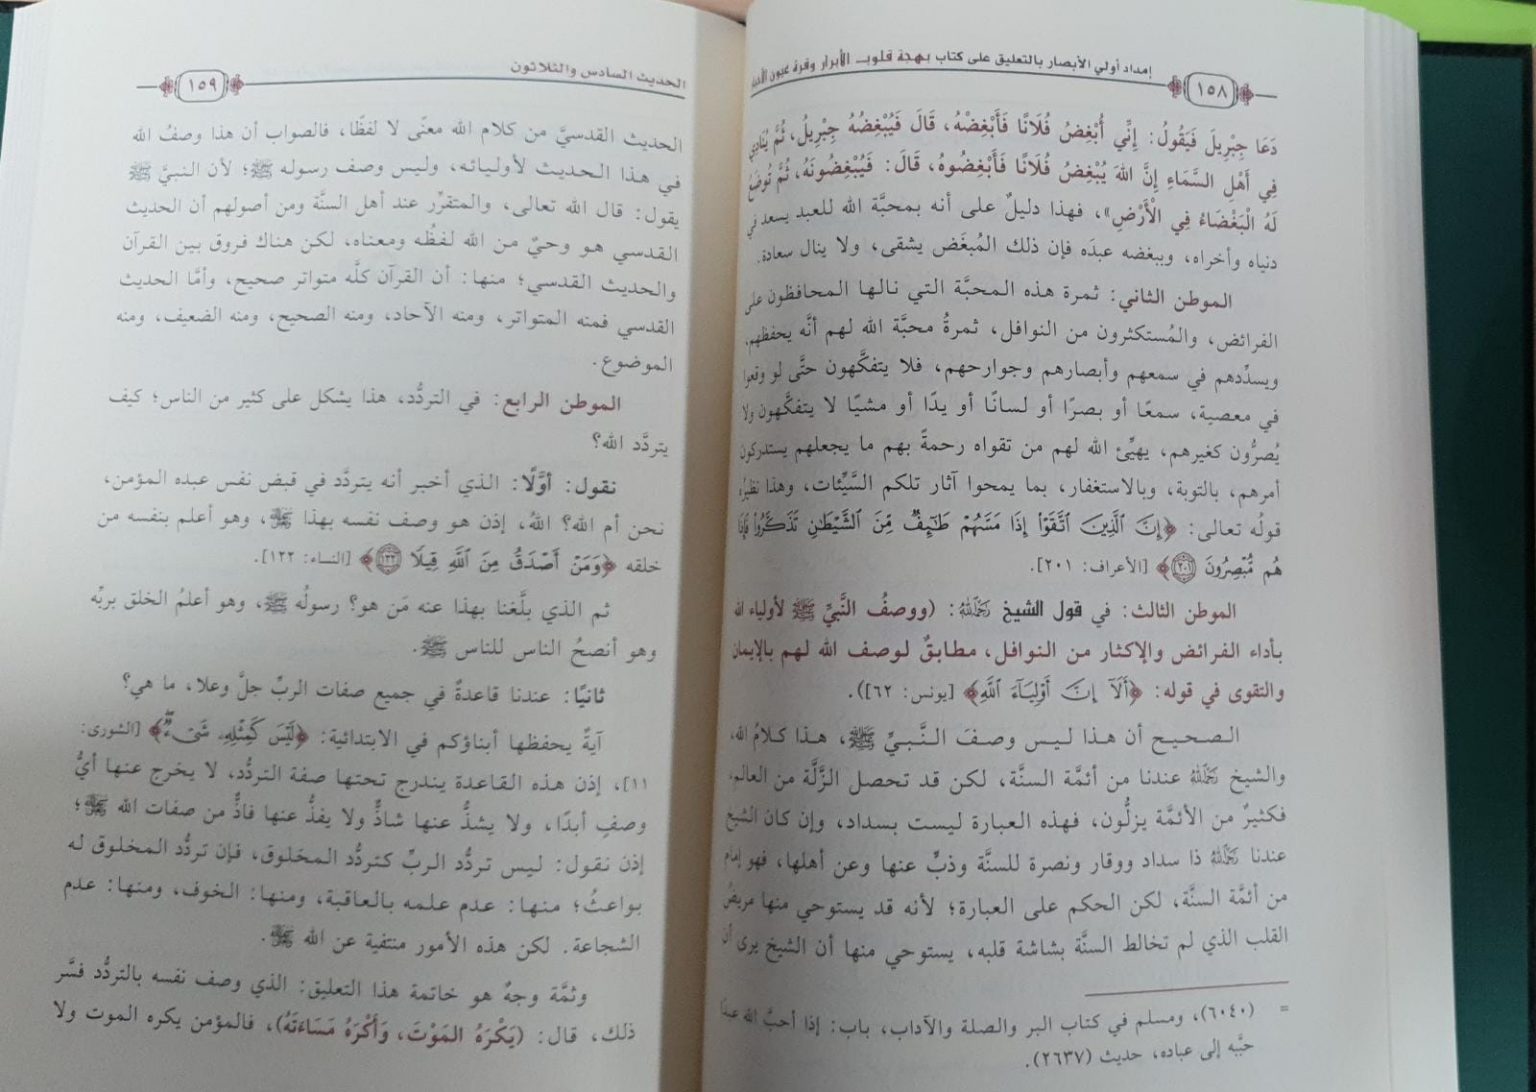 ١٥٨
إمداد أولي الأبصار بالتعليق على كتاب بهجة قلوب الأبرار وقرة عيون
دَعَا جِبْرِيلَ فَيَقُولُ: إِنِّي أُبْغِضُ فُلَانًا فَأَبْغِضْهُ، قَالَ فَيُبْغِضُهُ جِبْرِيلُ، ثُمَّ يُنَادِي
فِي أَهْلِ السَّمَاءِ إِنَّ اللهَ يُبْغِضُ فُلَانًا فَأَبْغِضُوهُ، قَالَ: فَيُبْغِضُونَهُ، ثُمَّ تُوضَعُ
لَهُ الْبَغْضَاءُ فِي الْأَرْضِ»، فهذا دليلٌ على أنه بمحبَّة الله للعبد يسعد في
دنياه وأخراه، وببغضه عبدَه فإن ذلك المُبغَض يشقى، ولا ينال سعادة.
الموطن الثاني: ثمرة هذه المحبَّة التي نالها المحافظون على
الفرائض، والمُستكثرون من النوافل، ثمرةُ محبَّة الله لهم أنَّه يحفظهم،
ويسدِّدهم في سمعهم وأبصارهم وجوارحهم، فلا يتفكَّهون حتَّى لو وقعوا
في معصية، سمعًا أو بصرًا أو لسانًا أو يدًا أو مشيًا لا يتفكَّهون ولا
يُصرُّون كغيرهم، يهيِّئ الله لهم من تقواه رحمةً بهم ما يجعلهم يستدركون
أمرهم، بالتوبة، وبالاستغفار، بما يمحوا آثار تلكم السَّيِّئات، وهذا نظيرُه
قولُه تعالى: ﴿إِنَّ ٱلَّذِينَ ٱتَّقَوْا۟ إِذَا مَسَّهُمْ طَـٰٓئِفٌ مِّنَ ٱلشَّيْطَـٰنِ تَذَكَّرُوا۟ فَإِذَا
هُم مُّبْصِرُونَ ٢٠١﴾ [الأعراف: ٢٠١].
الموطن الثالث: في قول الشيخ رَحِمَهُ اللهُ: (ووصفُ النَّبيِّ ﷺ لأولياء الله
بأداء الفرائض والإكثار من النوافل، مطابقٌ لوصف الله لهم بالإيمان
والتقوى في قوله: ﴿أَلَآ إِنَّ أَوْلِيَآءَ ٱللَّهِ﴾ [يونس: ٦٢]).
الصحيح أن هذا ليس وصفَ النَّبيِّ ﷺ، هذا كلامُ الله،
والشيخ رَحِمَهُ اللهُ عندنا من أئمَّة السنَّة، لكن قد تحصل الزَّلَّة من العالم،
فكثيرٌ من الأئمَّة يزلُّون، فهذه العبارة ليست بسداد، وإن كان الشيخ
عندنا رَحِمَهُ اللهُ ذا سداد ووقار ونصرة للسنَّة وذبٍّ عنها وعن أهلها، فهو إمام
من أئمَّة السنَّة، لكن الحكم على العبارة؛ لأنه قد يستوحي منها مريضُ
القلب الذي لم تخالط السنَّة بشاشة قلبه، يستوحي منها أن الشيخ يرى أن
= (٦٠٤٠)، ومسلم في كتاب البر والصلة والآداب، باب: إذا أحبَّ الله عبدًا
حبَّبه إلى عباده، حديث (٢٦٣٧).
الحديث السادس والثلاثون
١٥٩
الحديث القدسيَّ من كلام الله معنًى لا لفظًا، فالصواب أن هذا وصفُ الله
في هذا الحديث لأوليائه، وليس وصف رسوله ﷺ؛ لأن النبيَّ ﷺ
يقول: قال الله تعالى، والمتقرِّر عند أهل السنَّة ومن أصولهم أن الحديث
القدسي هو وحيٌ من الله لفظُه ومعناه، لكن هناك فروق بين القرآن
والحديث القدسي؛ منها: أن القرآن كلَّه متواتر صحيح، وأمَّا الحديث
القدسي فمنه المتواتر، ومنه الآحاد، ومنه الصحيح، ومنه الضعيف، ومنه
الموضوع.
الموطن الرابع: في التردُّد، هذا يشكل على كثير من الناس؛ كيف
يتردَّد الله؟
نقول: أوَّلًا: الذي أخبر أنه يتردَّد في قبض نفس عبده المؤمن،
نحن أم الله؟ اللهُ، إذن هو وصف نفسه بهذا ﷻ، وهو أعلم بنفسه من
خلقه ﴿وَمَنْ أَصْدَقُ مِنَ ٱللَّهِ قِيلًا ١٢٢﴾ [النساء: ١٢٢].
ثم الذي بلَّغنا بهذا عنه مَن هو؟ رسولُه ﷺ، وهو أعلمُ الخلق بربِّه
وهو أنصحُ الناس للناس ﷺ.
ثانيًا: عندنا قاعدةٌ في جميع صفات الربِّ جلَّ وعلا، ما هي؟
آيةٌ يحفظها أبناؤكم في الابتدائية: ﴿لَيْسَ كَمِثْلِهِۦ شَىْءٌ﴾ [الشورى:
١١]، إذن هذه القاعدة يندرج تحتها صفة التردُّد، لا يخرج عنها أيُّ
وصفٍ أبدًا، ولا يشذُّ عنها شاذٌّ ولا يفذُّ عنها فاذٌّ من صفات الله ﷻ؛
إذن نقول: ليس تردُّد الربِّ كتردُّد المخلوق، فإن تردُّد المخلوق له
بواعثُ؛ منها: عدم علمه بالعاقبة، ومنها: الخوف، ومنها: عدم
الشجاعة. لكن هذه الأمور منتفية عن الله ﷻ.
وثمَّة وجهٌ هو خاتمة هذا التعليق: الذي وصف نفسه بالتردُّد فسَّر
ذلك، قال: (يَكْرَهُ المَوْتَ، وَأَكْرَهُ مَسَاءَتَهُ)، فالمؤمن يكره الموت ولا